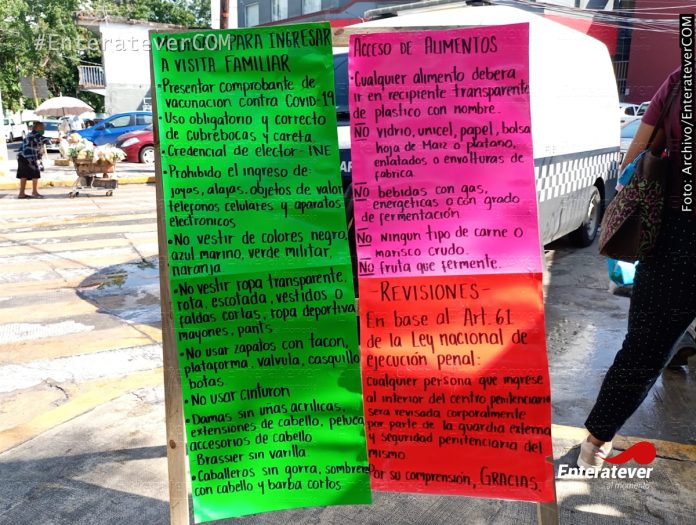 #EnterateverCOM
PARA INGRESAR
A VISITA FAMILIAR
•Presentar comprobante de
vacunación contra Covid-19
•Uso obligatorio y correcto
de cubrebocas y careta.
•Credencial de elector-INE
•Prohibido el ingreso de
joyas, alajas, objetos de valor
telefonos celulares y aparatos
electronicos
•No vestir de colores negro,
azul marino, verde militar,
naranja
•No vestir ropa transparente,
rota, escotada, vestidos o
faldas cortas, ropa deportiva
mayones, pants.
•No usar zapatos con tacon,
plataforma, valvula, casquillo
botas
•No usar cinturon
•Damas sin unas acrilicas,
extensiones de cabello, peluca
accesorios de cabello
Brassier sin varilla
•Caballeros sin gorra, sombrero
con cabello y barba cortos
ACCESO DE ALIMENTOS
•Cualquier alimento debera
ir en recipiente transparente
de plastico con nombre.
NO vidrio, unicel, papel, bolsa
hoja de maiz o platano,
enlatados o envolturas de
fabrica.
No bebidas con gas,
energeticas o con grado
de fermentación
No ningun tipo de carne o
marisco crudo.
No fruta que fermente.
-REVISIONES-
En base al Art. 61
de la Ley nacional de
ejecución penal:
cualquier persona que ingrese
al interior del centro penitenciario
sera revisada corporalmente
por parte de la guardia externa
y seguridad penitenciaria del
mismo.
Por su comprensión, GRACIAS.
Foto: Archivo/Enteratever.COM
Enteratever
al momento